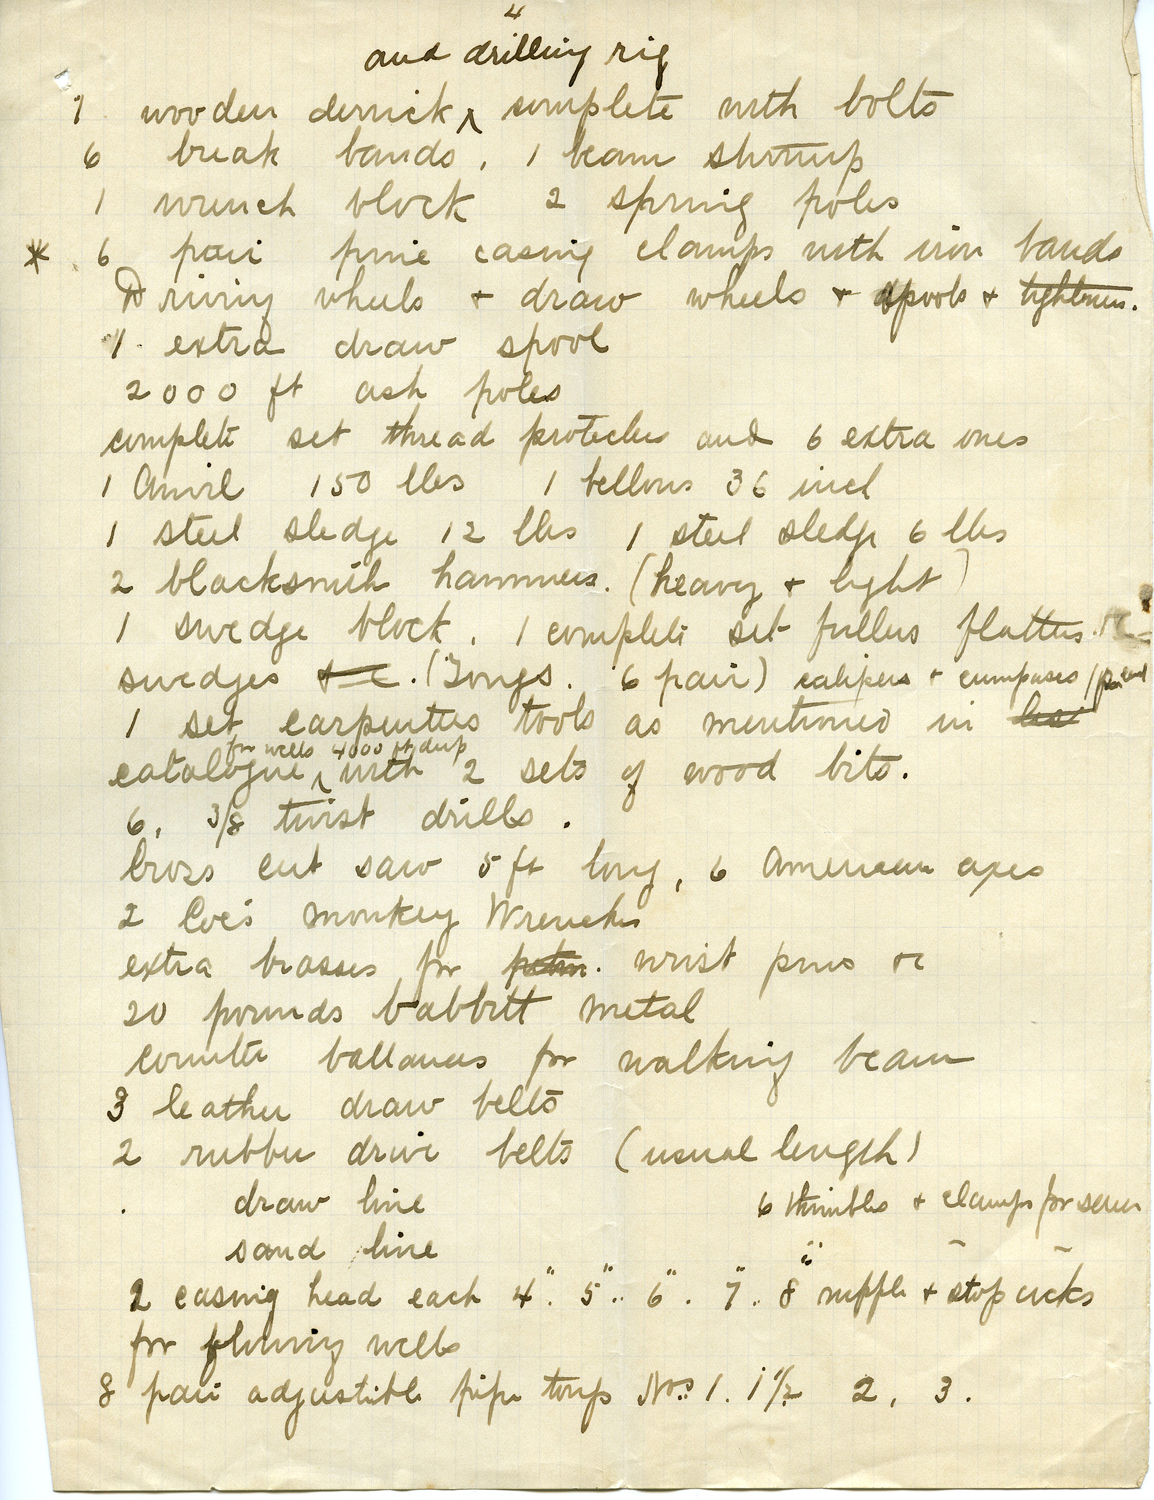 4
and drilling rig
1 wooden derrick ^ complete with bolts
6 break bands, 1 beam stirrup
1 wrench block 2 spring poles
* 6 pair pine casing clamps with iron bands
Driving wheels + draw wheels + spools + tightners.
1 extra draw spool
2000 ft ash poles
complete set thread protecters and 6 extra ones
1 Anvil 150 lbs 1 bellows 36 inch
1 steel sledge 12 lbs 1 steel sledge 6 lbs
2 blacksmith hammers. (heavy + light)
1 swedge block, 1 complete set fullers flatters
swedges + c. (Tongs. 6 pair) calipers + cumpases 1 pr each
1 set carpenters tools as mentioned in list
for wells 4000 ft deep
catalogue ^ with 2 sets of wood bits.
6, 3/8 twist drills.
Cross cut saw 5 ft long, 6 American axes
2 Coe's monkey Wrenches
extra brasses for wrist pins &c
20 pounds babbitt metal
counter ballances for walking beam
3 leather draw belts
2 rubber drive belts (usual length)
draw line 6 thimbles + clamps for same
sand line
2 casing head each 4". 5".. 6". 7".. 8" nipple + stop cocks
for flowing wells
8 pair adjustible pipe tongs Nos. 1. 1 1/2 2, 3.